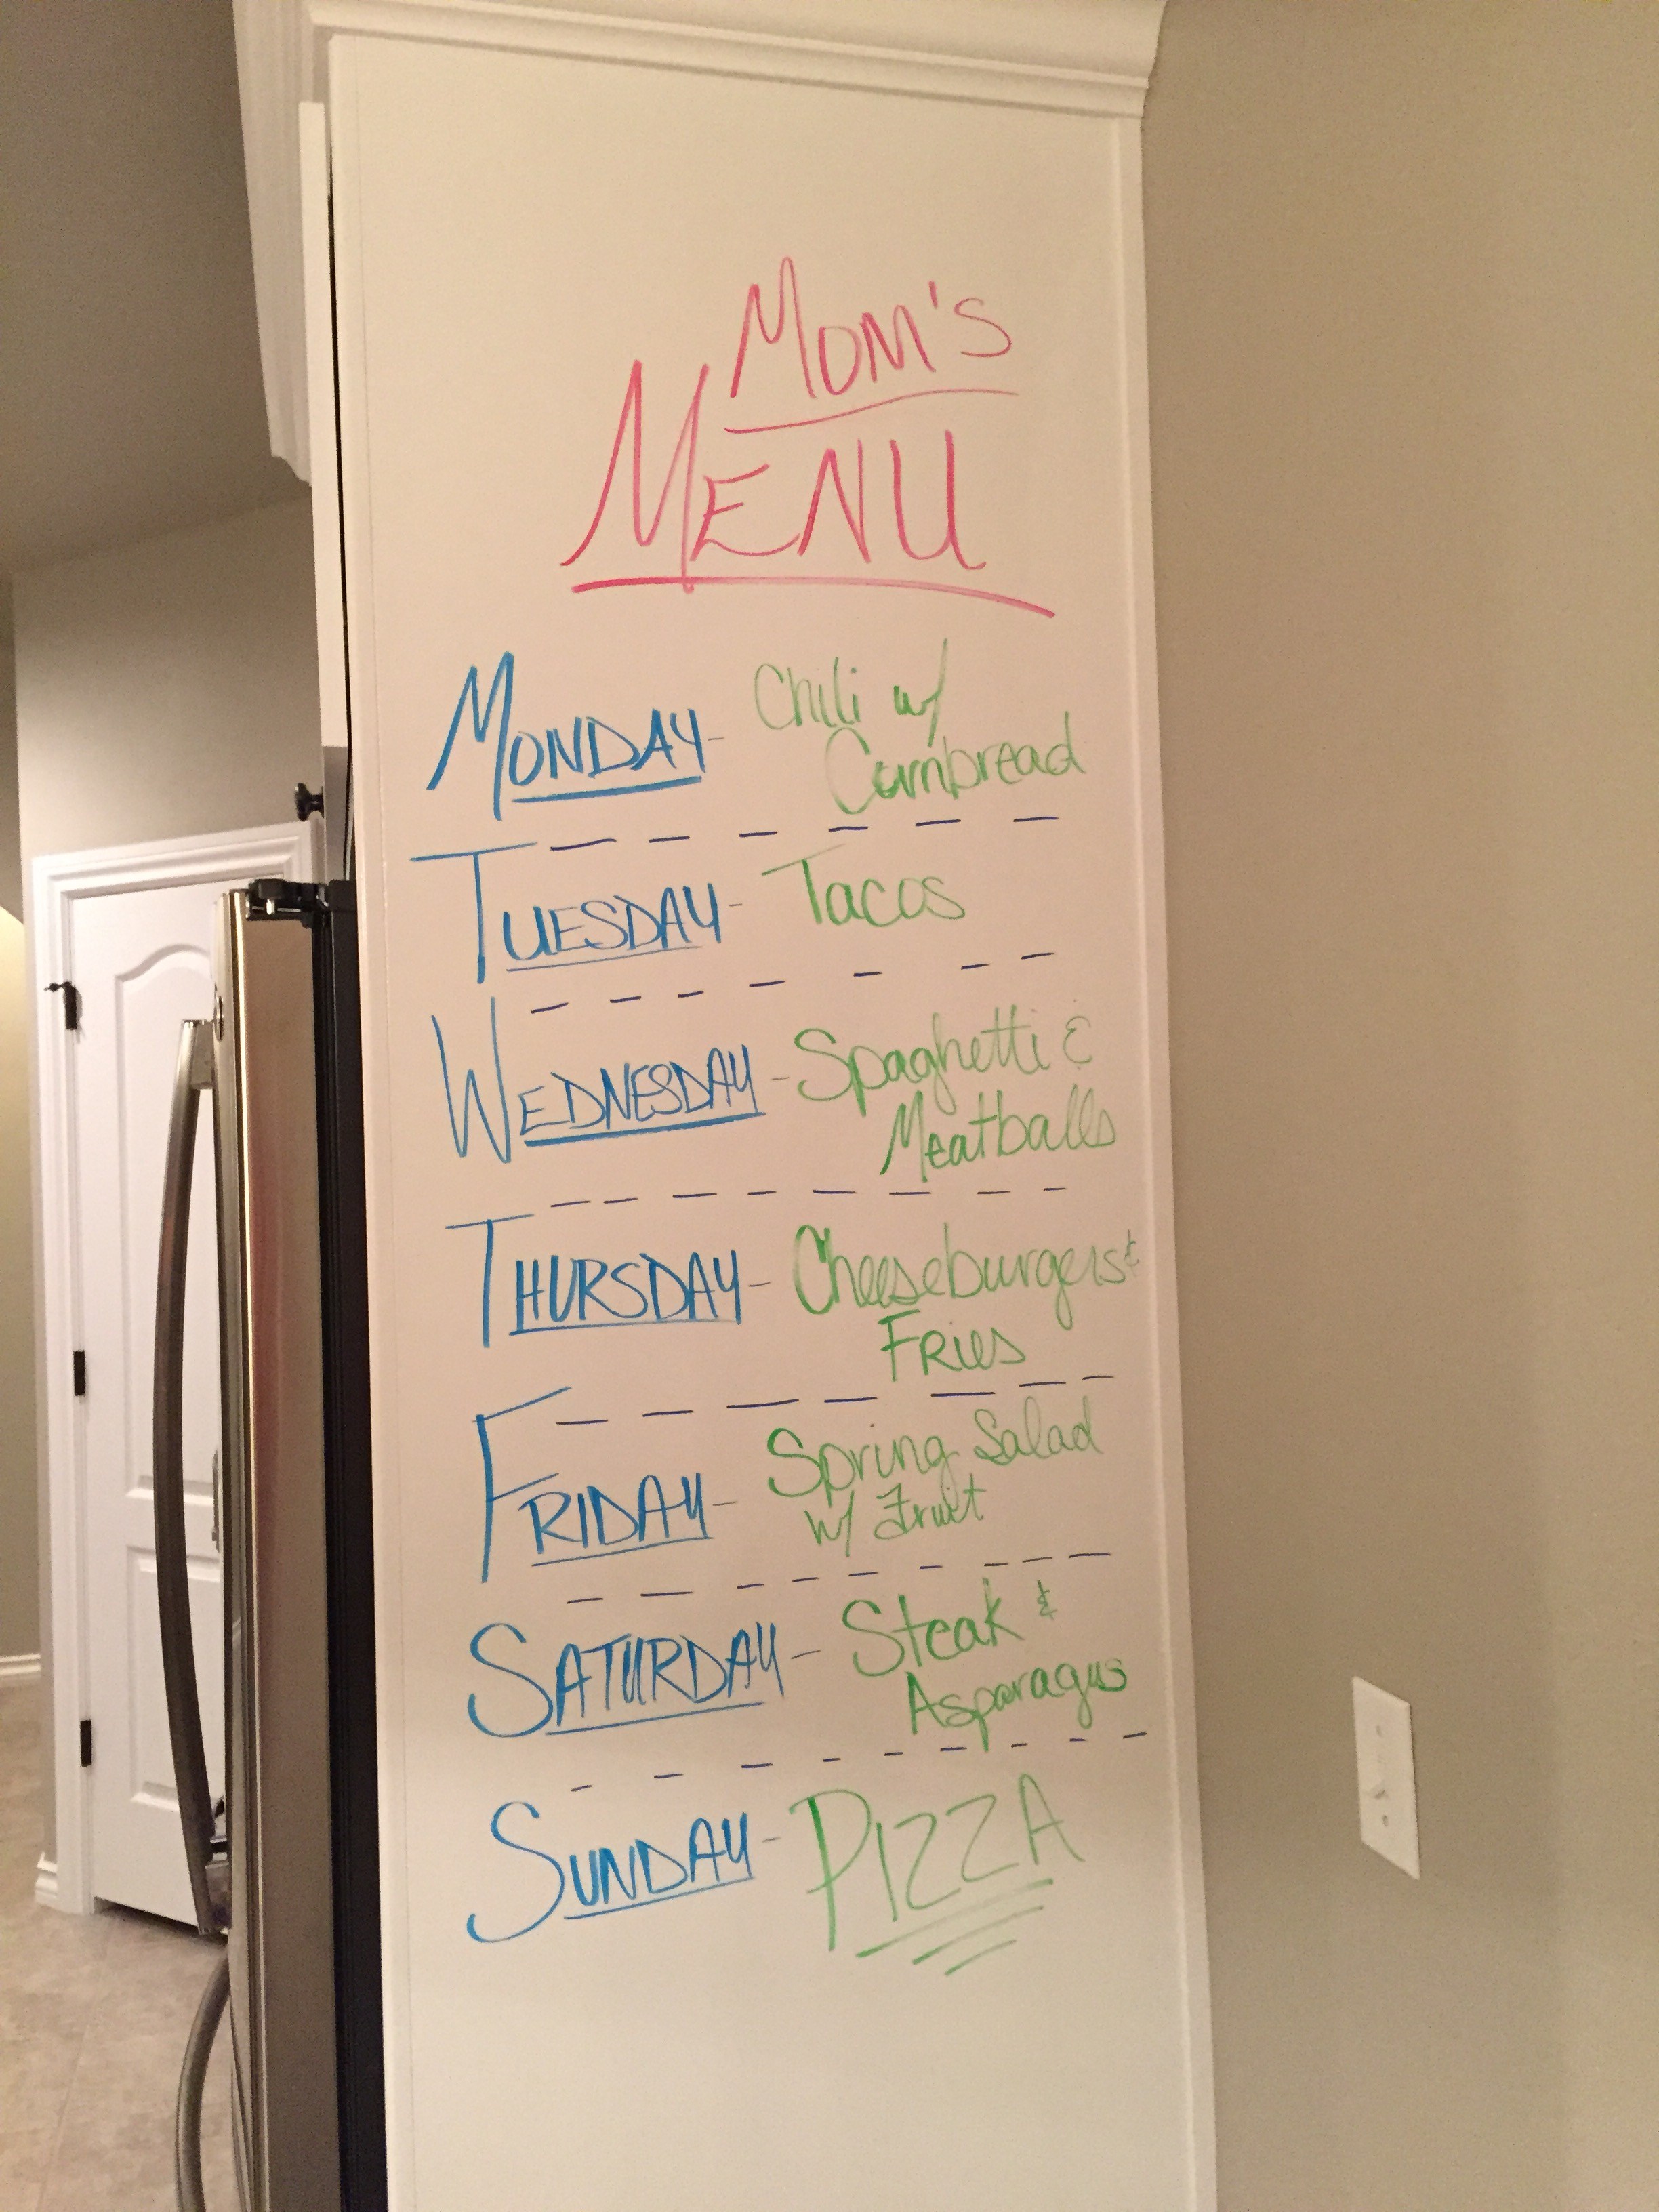 Mom's
MENU
MONDAY- Chili w/
Cornbread
TUESDAY- Tacos
WEDNESDAY- Spaghetti &
Meatballs
THURSDAY- Cheeseburgers &
FRies
FRIDAY- Spring Salad
w/ Fruit
SATURDAY- Steak &
Asparagus
SUNDAY- PIZZA